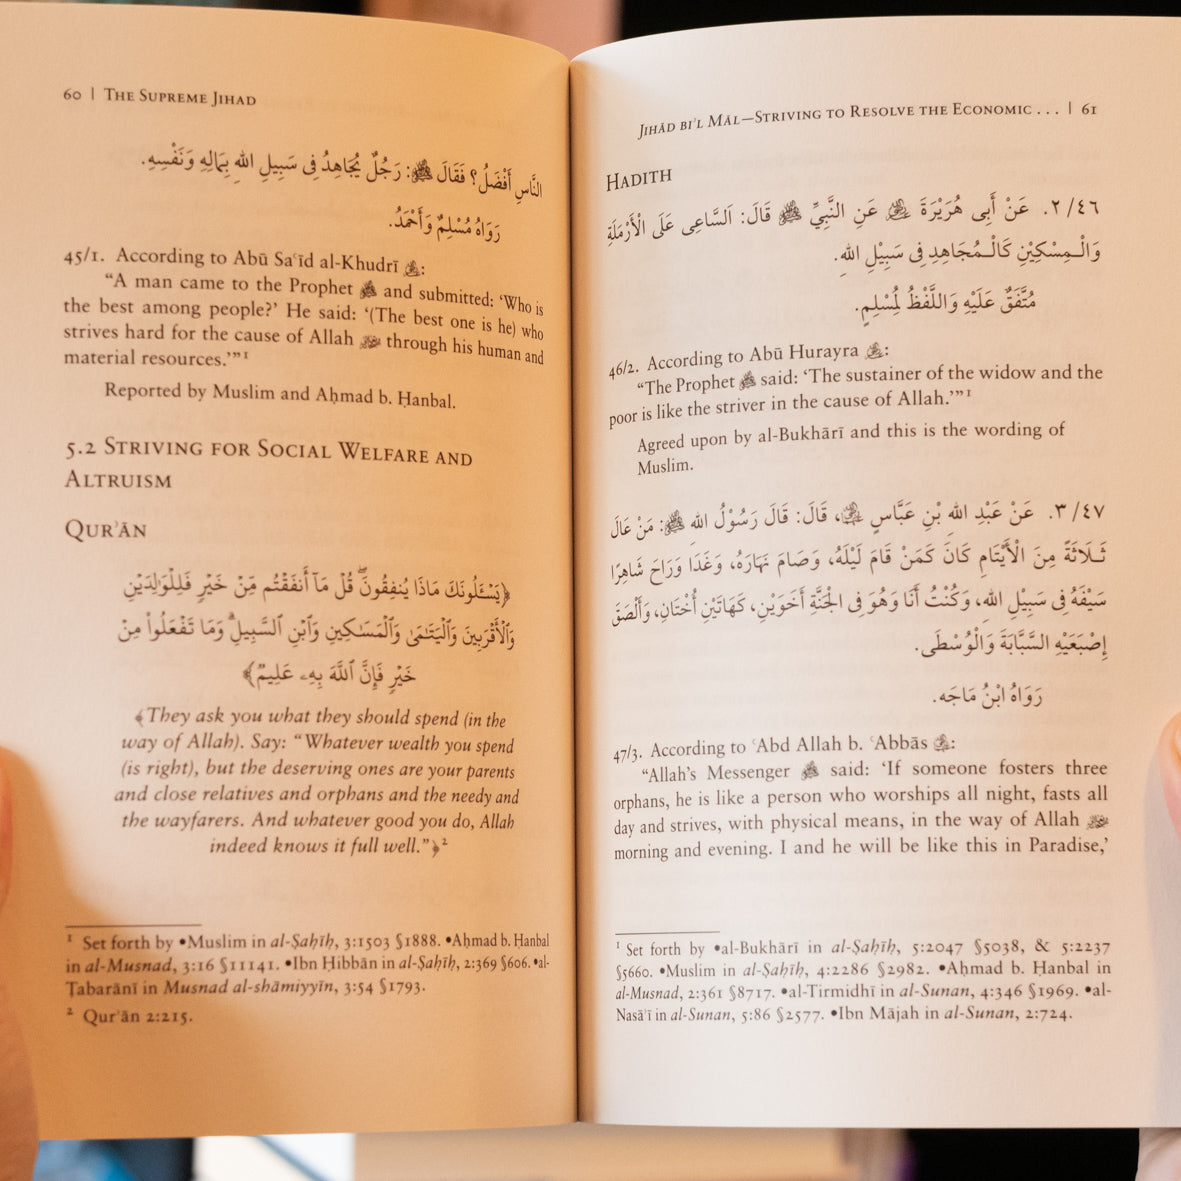 60 | The Supreme Jihad
النَّاسِ أَفْضَلُ؟ فَقَالَ ﷺ: رَجُلٌ يُجَاهِدُ فِى سَبِيلِ اللهِ بِمَالِهِ وَنَفْسِهِ.
رَوَاهُ مُسْلِمٌ وَأَحْمَدُ.
45/1. According to Abū Saʿīd al-Khudrī :
“A man came to the Prophet ﷺ and submitted: ‘Who is
the best among people?’ He said: ‘(The best one is he) who
strives hard for the cause of Allah through his human and
material resources.’”¹
Reported by Muslim and Aḥmad b. Ḥanbal.
5.2 Striving for Social Welfare and
Altruism
Qurʾān
﴿يَسْـَٔلُونَكَ مَاذَا يُنفِقُونَۖ قُلْ مَآ أَنفَقْتُم مِّنْ خَيْرٍ فَلِلْوَٰلِدَيْنِ
وَٱلْأَقْرَبِينَ وَٱلْيَتَـٰمَىٰ وَٱلْمَسَـٰكِينِ وَٱبْنِ ٱلسَّبِيلِۗ وَمَا تَفْعَلُوا۟ مِنْ
خَيْرٍ فَإِنَّ ٱللَّهَ بِهِۦ عَلِيمٌ﴾
﴾They ask you what they should spend (in the
way of Allah). Say: “Whatever wealth you spend
(is right), but the deserving ones are your parents
and close relatives and orphans and the needy and
the wayfarers. And whatever good you do, Allah
indeed knows it full well.”﴿²
¹ Set forth by •Muslim in al-Ṣaḥīḥ, 3:1503 §1888. •Aḥmad b. Ḥanbal
in al-Musnad, 3:16 §11141. •Ibn Ḥibbān in al-Ṣaḥīḥ, 2:369 §606. •al-
Ṭabarānī in Musnad al-shāmiyyīn, 3:54 §1793.
² Qurʾān 2:215.
Jihād bi’l Māl—Striving to Resolve the Economic . . . | 61
Hadith
٢/٤٦. عَنْ أَبِى هُرَيْرَةَ عَنِ النَّبِيِّ ﷺ قَالَ: اَلسَّاعِى عَلَى الْأَرْمَلَةِ
وَالْـمِسْكِيْنِ كَالْـمُجَاهِدِ فِى سَبِيْلِ اللهِ.
مُتَّفَقٌ عَلَيْهِ وَاللَّفْظُ لِمُسْلِمٍ.
46/2. According to Abū Hurayra :
“The Prophet ﷺ said: ‘The sustainer of the widow and the
poor is like the striver in the cause of Allah.’”¹
Agreed upon by al-Bukhārī and this is the wording of
Muslim.
٣/٤٧. عَنْ عَبْدِ اللهِ بْنِ عَبَّاسٍ ، قَالَ: قَالَ رَسُوْلُ اللهِ ﷺ: مَنْ عَالَ
ثَـلَاثَةً مِنَ الْأَيْتَامِ كَانَ كَمَنْ قَامَ لَيْلَهُ، وَصَامَ نَهَارَهُ، وَغَدَا وَرَاحَ شَاهِرًا
سَيْفَهُ فِى سَبِيْلِ اللهِ، وَكُنْتُ أَنَا وَهُوَ فِى الْجَنَّةِ أَخَوَيْنِ، كَهَاتَيْنِ أُخْتَانِ، وَأَلْصَقَ
إِصْبَعَيْهِ السَّبَّابَةَ وَالْوُسْطَى.
رَوَاهُ ابْنُ مَاجَه.
47/3. According to ʿAbd Allah b. ʿAbbās :
“Allah’s Messenger ﷺ said: ‘If someone fosters three
orphans, he is like a person who worships all night, fasts all
day and strives, with physical means, in the way of Allah
morning and evening. I and he will be like this in Paradise,’
¹ Set forth by •al-Bukhārī in al-Ṣaḥīḥ, 5:2047 §5038, & 5:2237
§5660. •Muslim in al-Ṣaḥīḥ, 4:2286 §2982. •Aḥmad b. Ḥanbal in
al-Musnad, 2:361 §8717. •al-Tirmidhī in al-Sunan, 4:346 §1969. •al-
Nasāʾī in al-Sunan, 5:86 §2577. •Ibn Mājah in al-Sunan, 2:724.